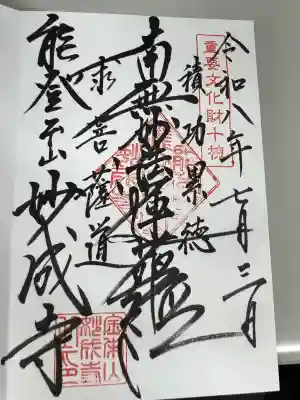 令和八年七月三一日
重要文化財十棟
積功累徳
南無妙法蓮華経
求菩薩道
能登山妙成寺
金栄山妙成寺